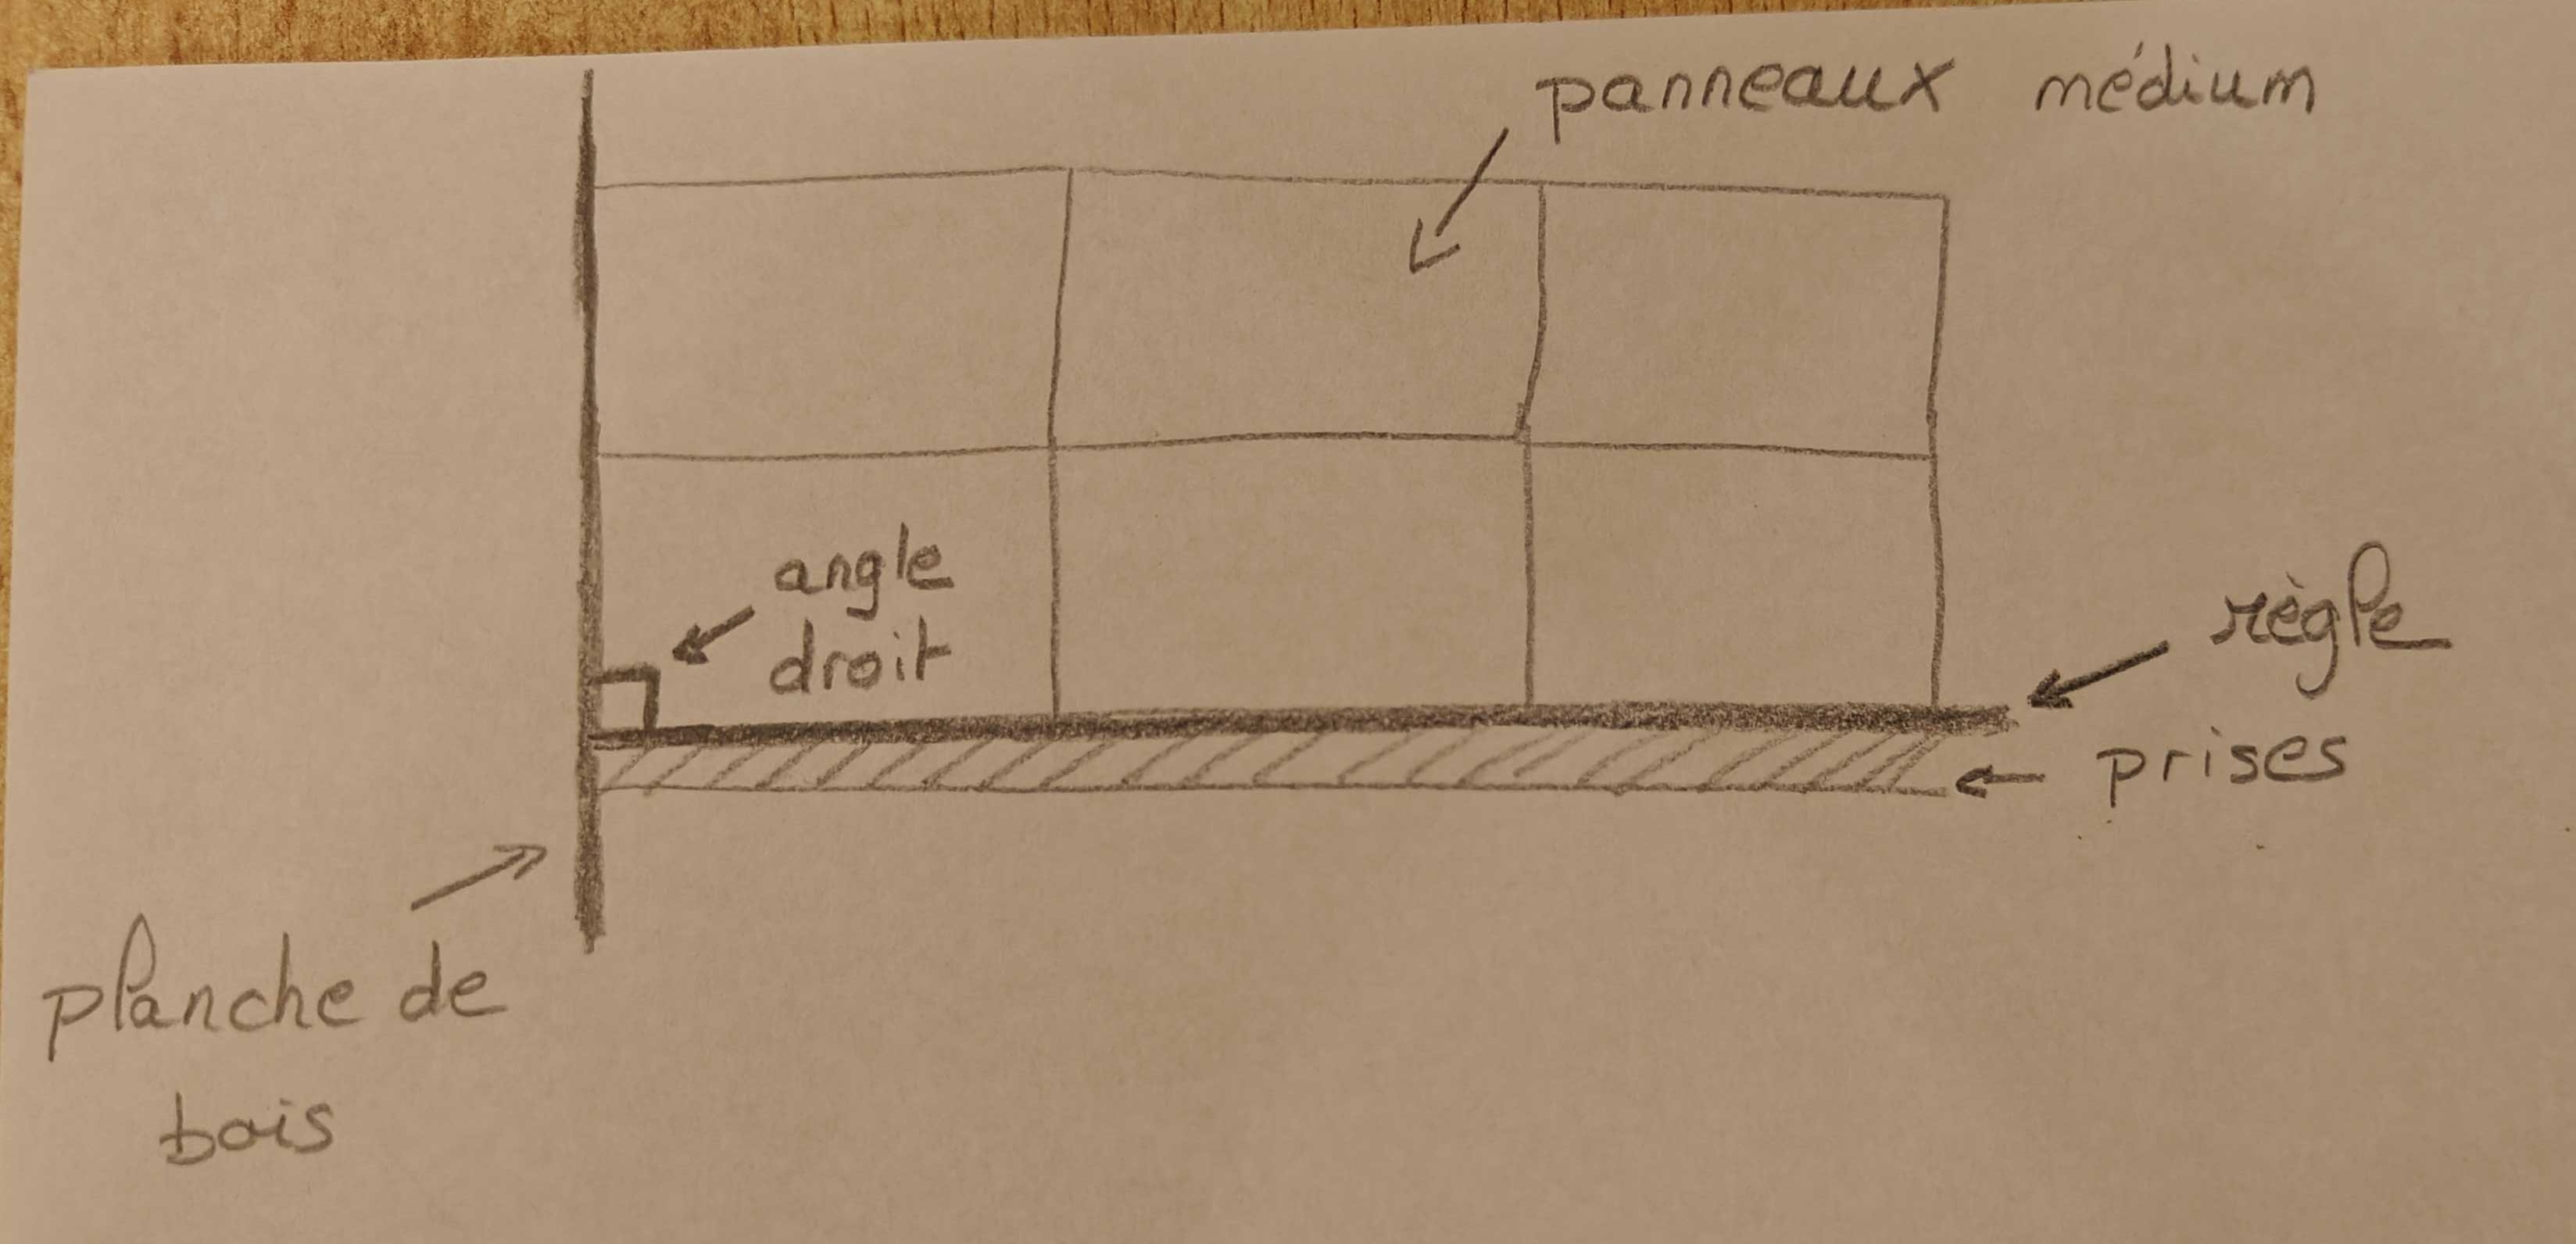 panneaux médium
angle
droit
règle
prises
planche de
bois